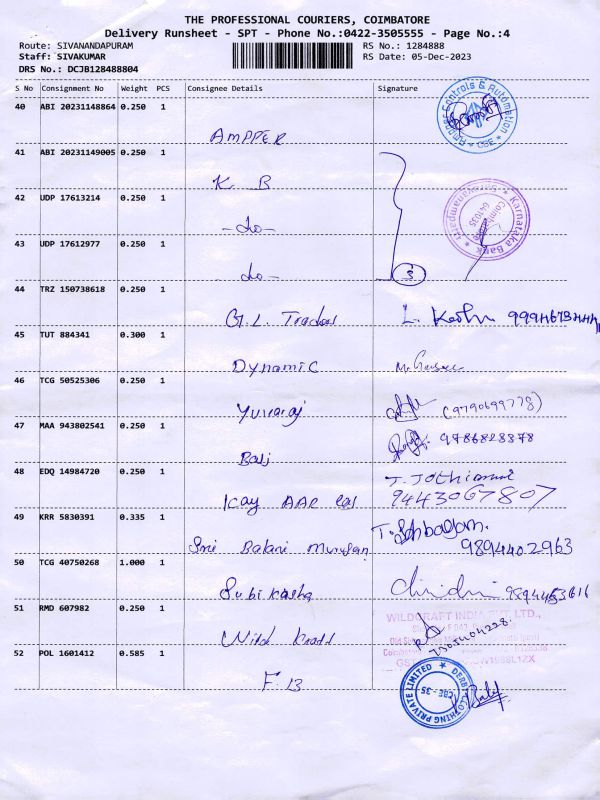 THE PROFESSIONAL COURIERS, COIMBATORE
Delivery Runsheet - SPT - Phone No.:0422-3505555 - Page No.:4
Route: SIVANANDAPURAM RS No.: 1284888
Staff: SIVAKUMAR RS Date: 05-Dec-2023
DRS No.: DCJB128488804
S No Consignment No Weight PCS Consignee Details Signature
40 ABI 20231148864 0.250 1
AMPPER
41 ABI 20231149005 0.250 1
K B
42 UDP 17613214 0.250 1
-do-
43 UDP 17612977 0.250 1
do-
3
44 TRZ 150738618 0.250 1
G.L. Traders L.
45 TUT 884341 0.300 1
Dynamic
46 TCG 50525306 0.250 1
Yuvaraj (9790699778)
47 MAA 943802541 0.250 1
Balj 9786828378
48 EDQ 14984720 0.250 1
Kay AAR J. Jothimani
9443067807
49 KRR 5830391 0.335 1
Sri Balani Murugan T.
9894402963
50 TCG 40750268 1.000 1
Subiksha
51 RMD 607982 0.250 1
WILDCRAFT INDIA PVT. LTD.,
Wild
52 POL 1601412 0.585 1
F B
Ampper Controls & Automation
CBE
Karnataka Bank
Saravanampatti
Coimbatore
641035
DERBY CLOTHING PRIVATE LIMITED
CBE - 35